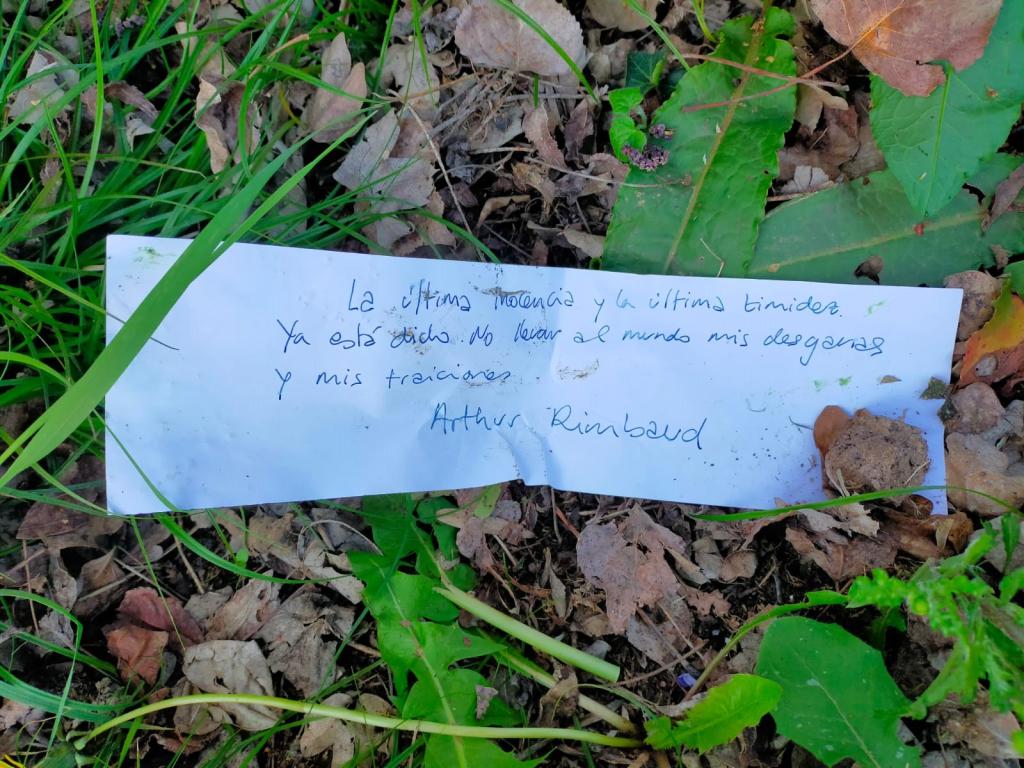 La última inocencia y la última timidez.
Ya está dicho. No llevar al mundo mis desganas
y mis traiciones.
Arthur Rimbaud